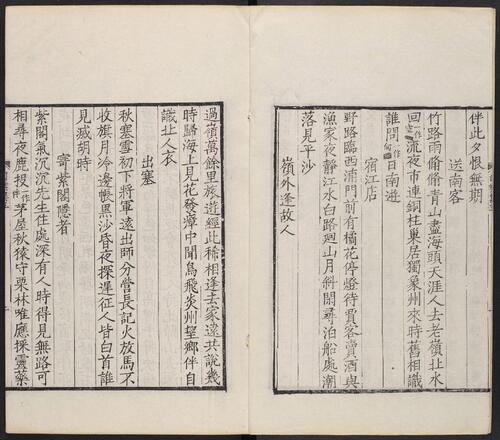 伴此夕恨無期
送南客
竹路雨脩脩青山盡海頭天涯人去老嶺北水
回一作空流夜市連銅柱巢居獨象州來時舊相識
誰問一作向日南遊
宿江店
野路臨西浦門前有橘花停燈待賈客賣酒與
漁家夜靜江水白路迴山月斜閑尋泊船處潮
落見平沙
嶺外逢故人
過嶺萬餘里旅遊經此稀相逢去家遠共說幾
時歸海上見花發瘴中聞鳥飛炎州望鄉伴自
識北人衣
出塞
秋塞雪初下將軍遠出師分營長記火放馬不
收旗月冷邊帳黑沙昏夜探遲征人皆白首誰
見滅胡時
寄紫閣隱者
紫閣氣沉沉先生住處深有人時得見無路可
相尋夜鹿投一作茅屋秋猿守栗林唯應採靈藥